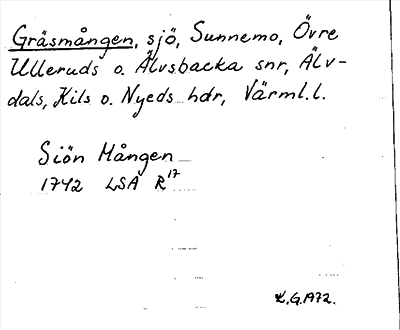 Gräsmången, sjö, Sunnemo, Övre
Ulleruds o. Älvsbacka snr, Älv-
dals, Kils o. Nyeds hdr, Värml.l.
Siön Mången
1742 LSA R17
L.G.1972.